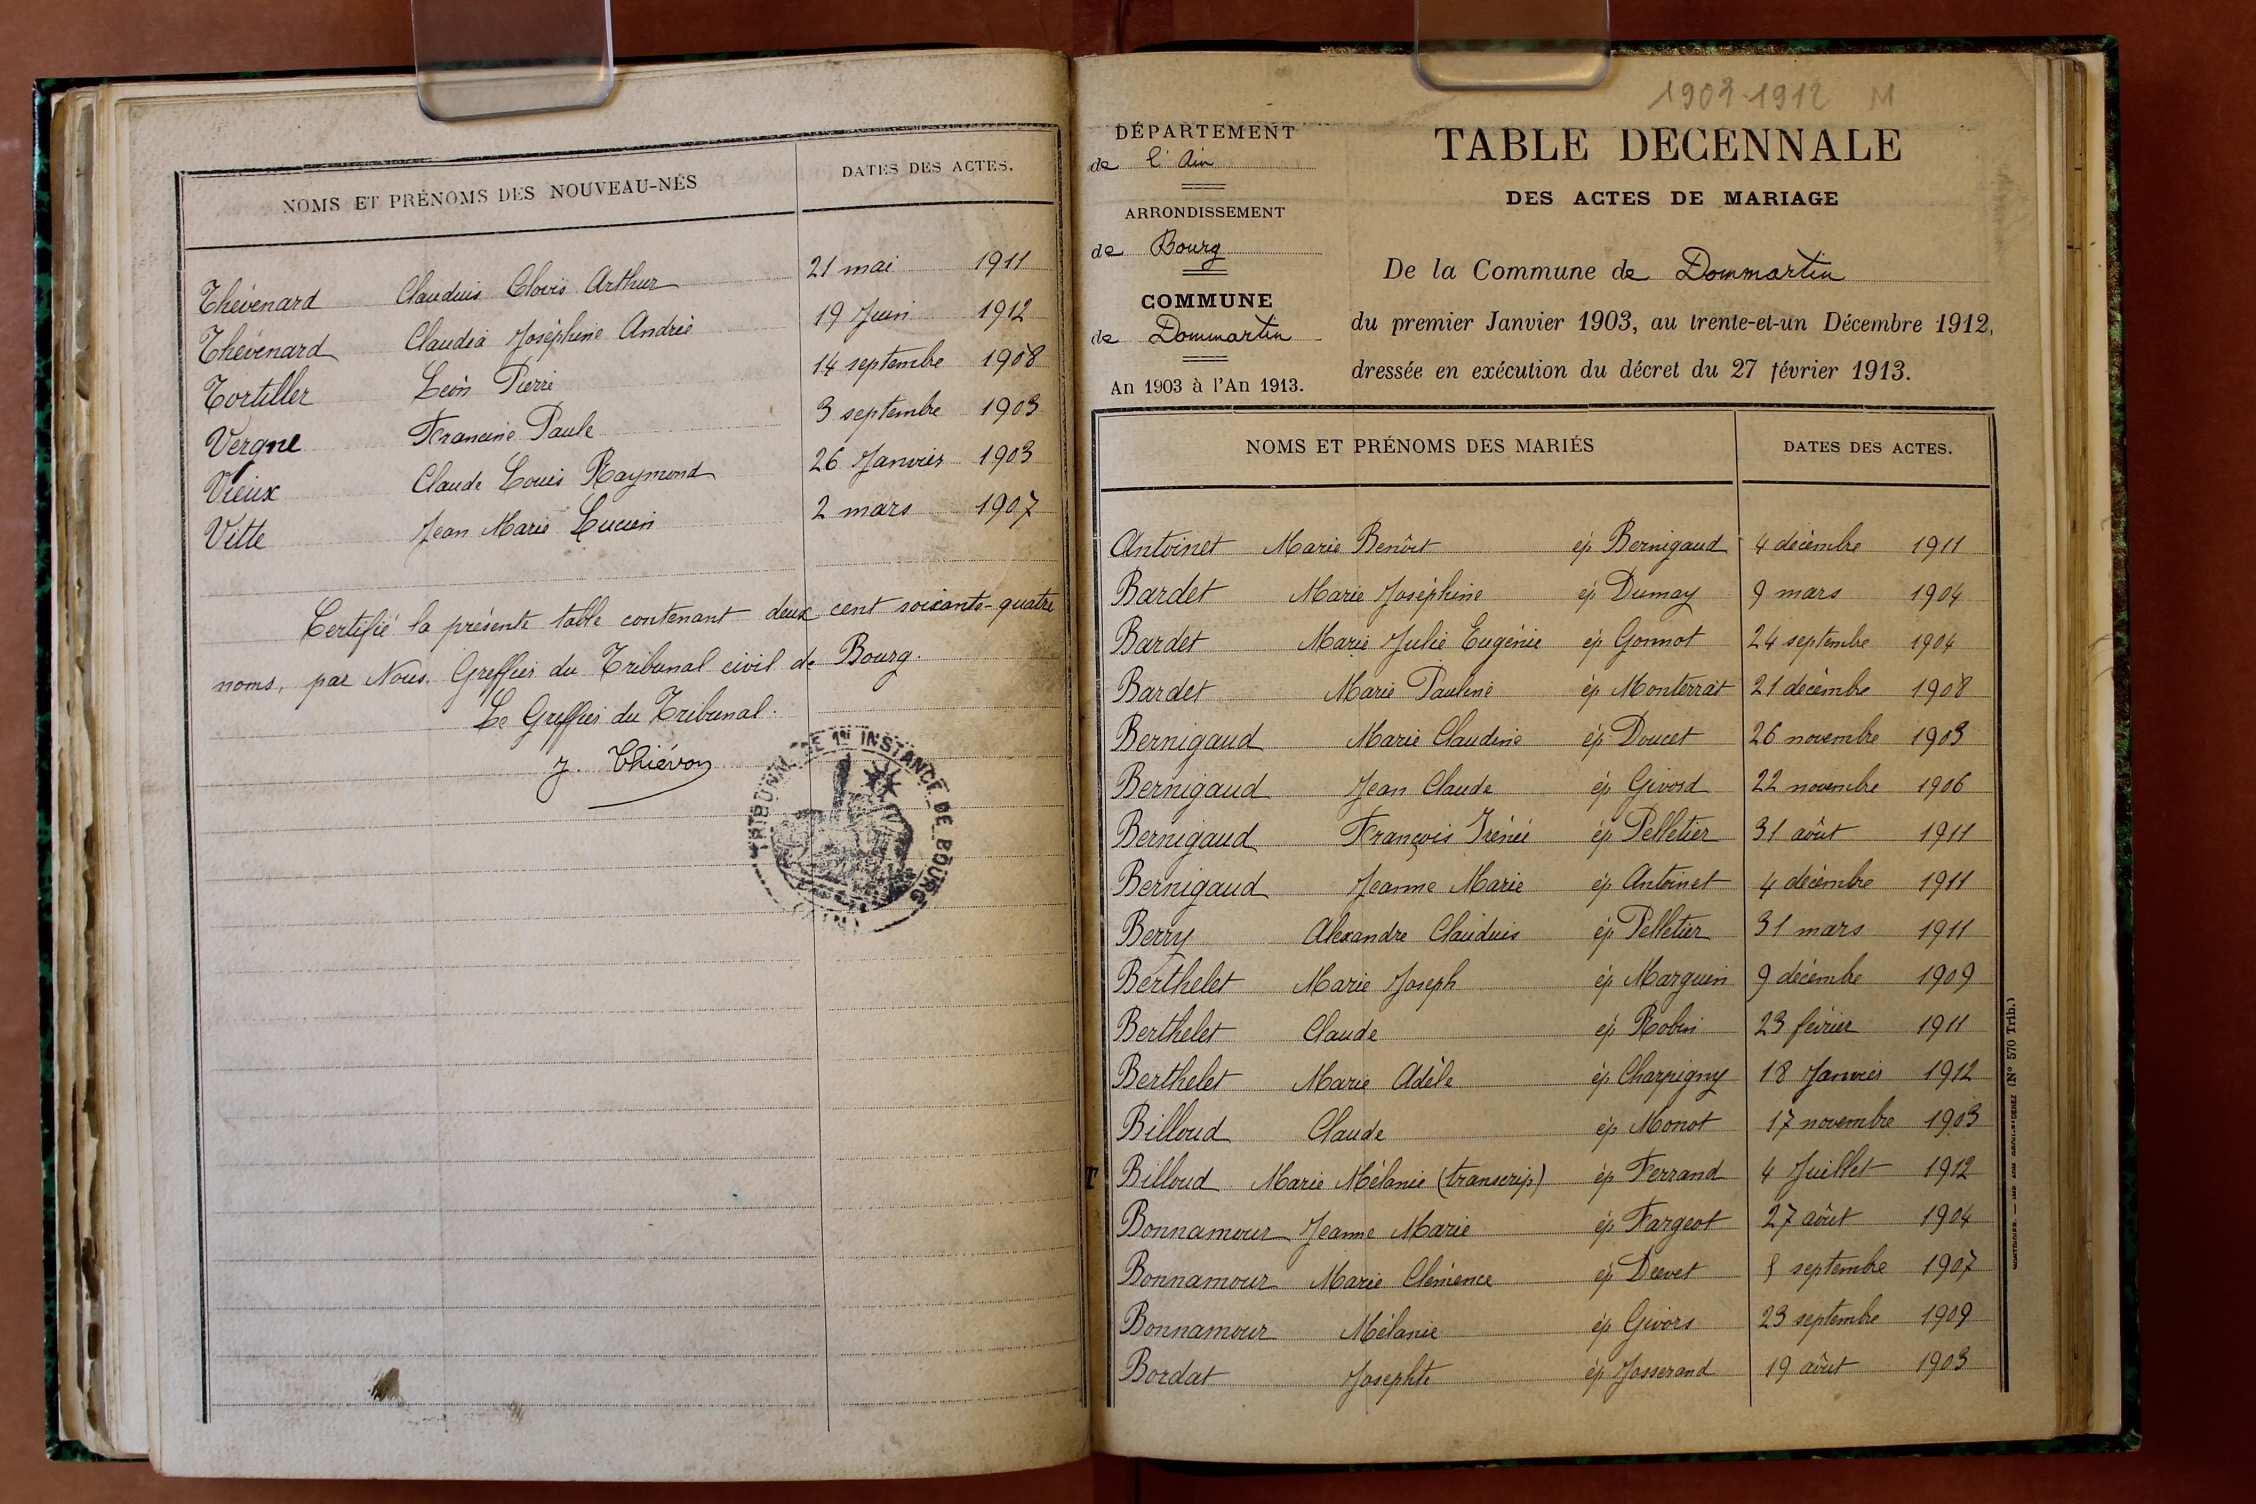 NOMS ET PRÉNOMS DES NOUVEAU-NÉS DATES DES ACTES.
Thévenard Claudius Clovis Arthur 21 mai 1911
Thévenard Claudia Joséphine Andrée 19 Juin 1912
Tortiller Léon Pierre 14 septembre 1908
Vergne Francine Paule 3 septembre 1903
Vieux Claude Louis Raymond 26 Janvier 1903
Vitte Jean Marie Lucien 2 mars 1907
Certifié la présente table contenant deux cent soixante-quatre
noms, par Nous. Greffier du Tribunal civil de Bourg.
Le Greffier du Tribunal.
J. Thiévon
TRIBUNAL DE 1re INSTANCE DE BOURG
(AIN)
1903-1912 M
DÉPARTEMENT
de l'Ain
ARRONDISSEMENT
de Bourg
COMMUNE
de Dommartin
An 1903 à l'An 1913.
TABLE DECENNALE
DES ACTES DE MARIAGE
De la Commune de Dommartin
du premier Janvier 1903, au trente-et-un Décembre 1912,
dressée en exécution du décret du 27 février 1913.
NOMS ET PRÉNOMS DES MARIÉS DATES DES ACTES.
Antoinet Marie Benoît ép Bernigaud 4 décembre 1911
Bardet Marie Joséphine ép Dumay 9 mars 1904
Bardet Marie Julie Eugénie ép Gonnot 24 septembre 1904
Bardet Marie Pauline ép Monterrat 21 décembre 1908
Bernigaud Marie Claudine ép Doucet 26 novembre 1903
Bernigaud Jean Claude ép Givord 22 novembre 1906
Bernigaud François Irénée ép Pelletier 31 août 1911
Bernigaud Jeanne Marie ép Antoinet 4 décembre 1911
Berry Alexandre Claudius ép Pelletier 31 mars 1911
Berthelet Marie Joseph ép Marguin 9 décembre 1909
Berthelet Claude ép Robin 23 février 1911
Berthelet Marie Adèle ép Charpigny 18 Janvier 1912
Billoud Claude ép Monot 17 novembre 1903
T Billoud Marie Mélanie (transcrip) ép Ferrand 4 Juillet 1912
Bonnamour Jeanne Marie ép Fargeot 27 août 1904
Bonnamour Marie Clémence ép Drevet septembre 1907
Bonnamour Mélanie ép Givors 23 septembre 1909
Bordat Josephte ép Josserand 19 août 1903
(N° 570 Trib.)